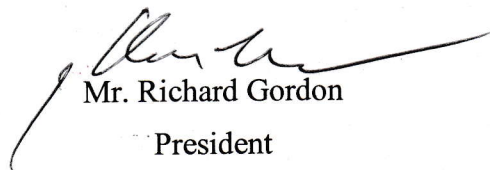 Mr. Richard Gordon
President